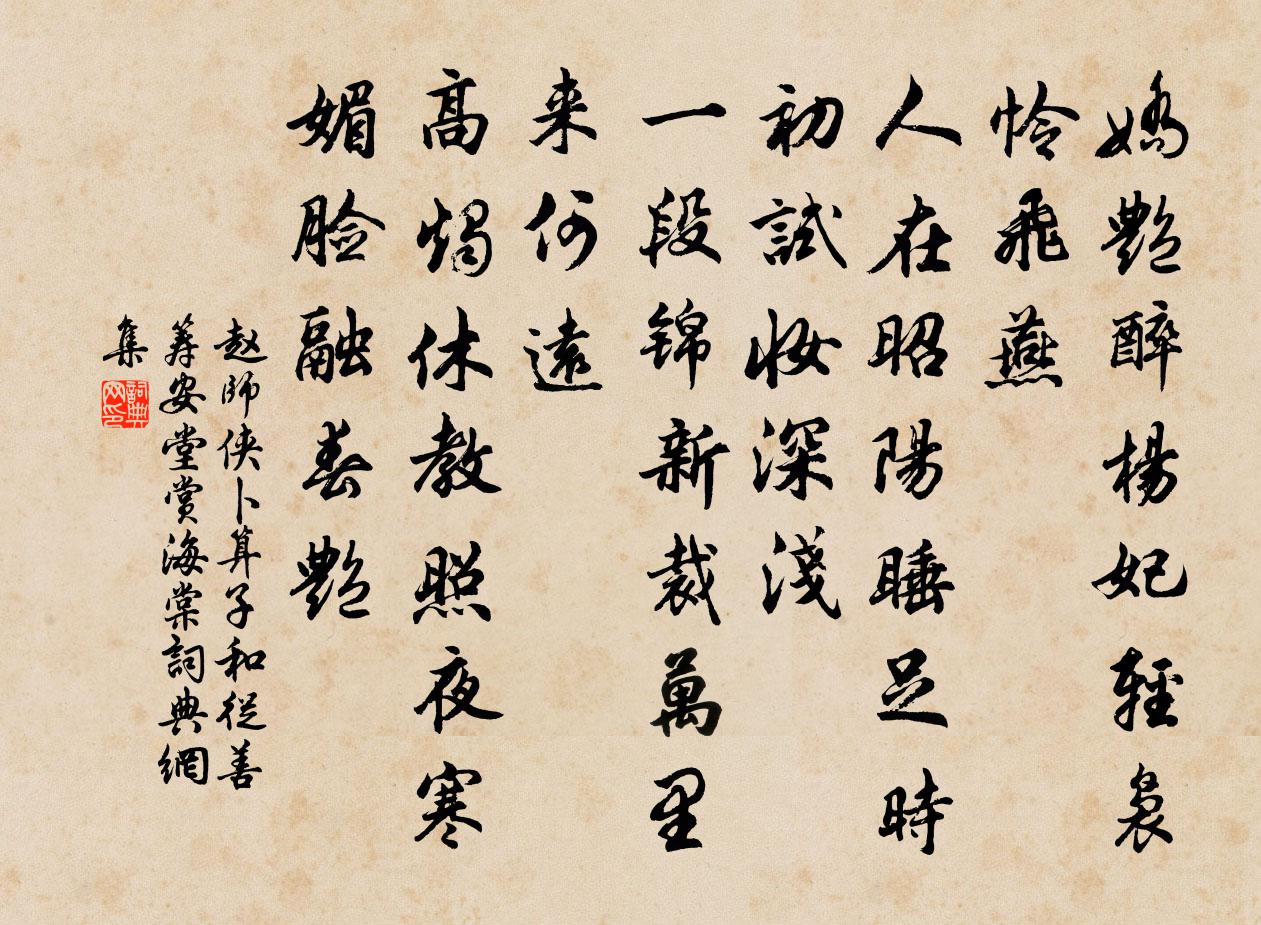 嬌艷醉楊妃輕裊
怜飛燕
人在昭陽睡足時
初試妝深淺
一段錦新裁萬里
来何遠
髙燭休教照夜寒
媚臉融春艷
赵師侠卜算子和從善
筹安堂賞海棠詞典網
集
詞典网印